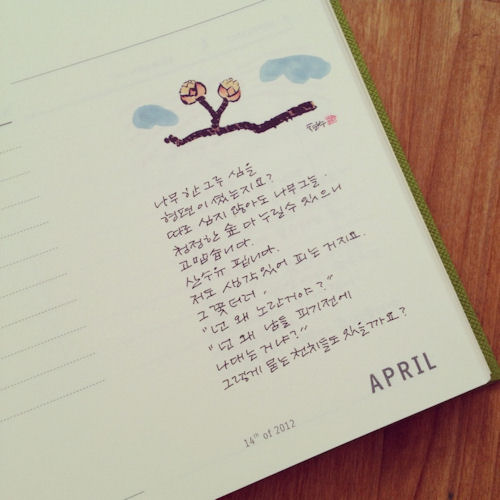 나무 한그루 심을
형편이 됐는지요?
따로 심지 않아도 나무그늘,
청정한 숲 다 누릴수 있으니
고맙습니다.
산수유 핍니다.
저도 생각있어 피는 거지요.
그 꽃더러,
"넌 왜 노란거야?"
"넌 왜 남들 피기전에
나대는거냐?"
그렇게 묻는 천치들도 있을까요?
APRIL
14th of 2012